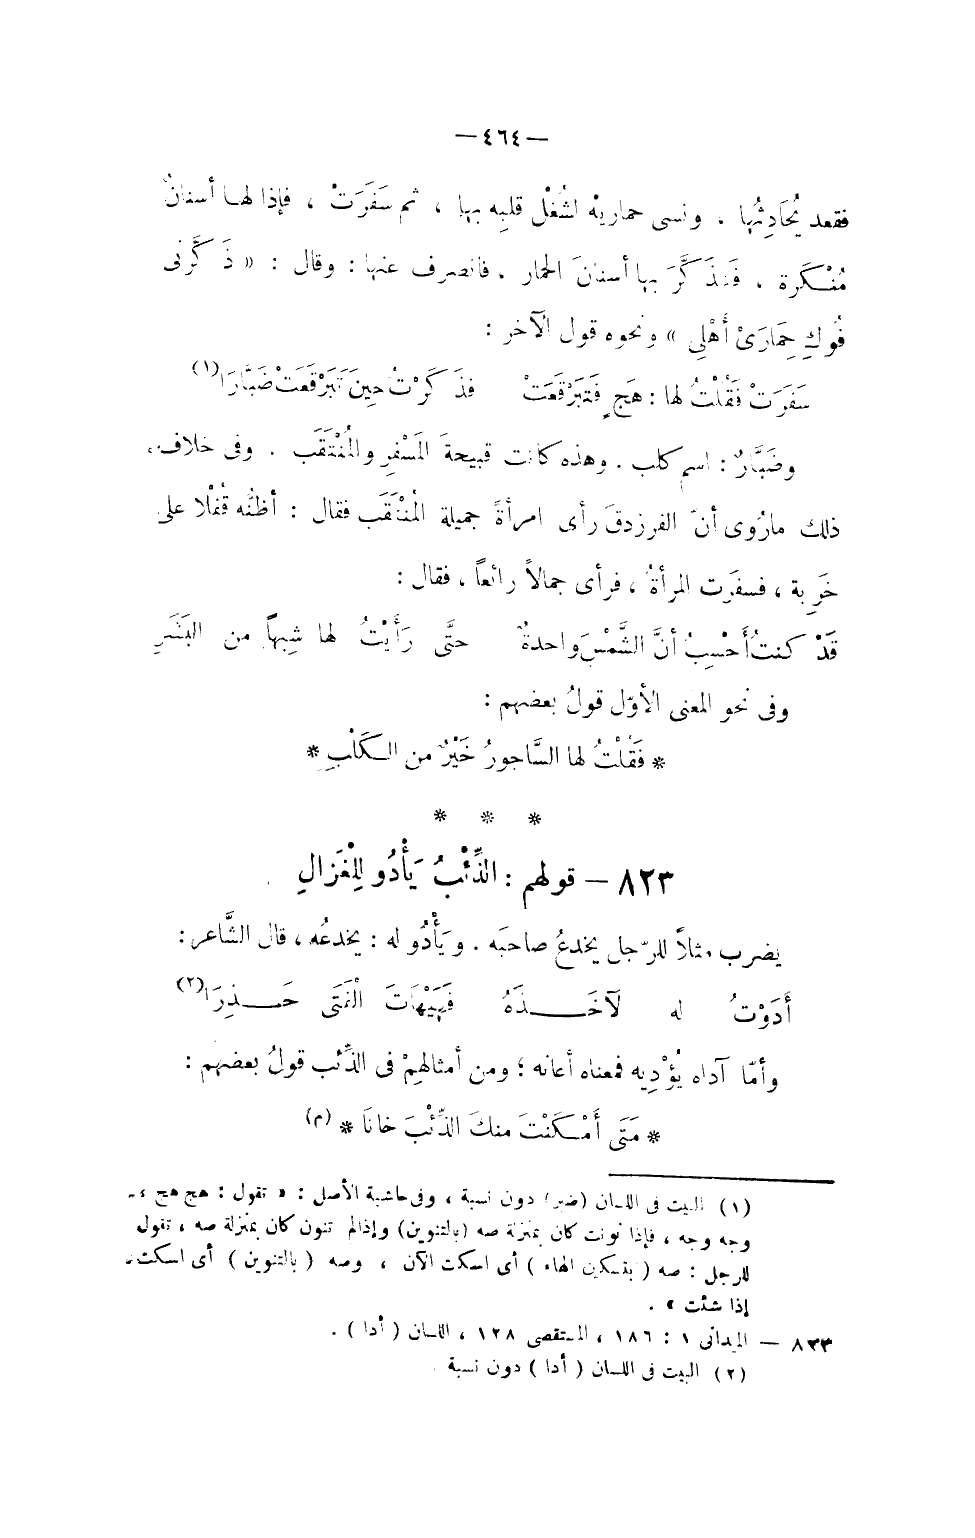 — ٤٦٤ —
فقعد يُحَادِثُها ، ونسى حماريْه لشُغْل قلبِه بها ، ثم سَفَرَتْ ، فإذا لها أسنانٌ
مُنْكَرة ، فَتَذَكَّرَ بها أسنانَ الحمار ، فانصرف عنها : وقال : « ذَكَّرَنى
فُوكِ حِمَارَىْ أَهْلِى » ونحوه قول الآخر :
سَفَرَتْ فَقُلْتُ لها : هَجٍ فَتَبَرْقَعَتْ فذَكَرْتُ حِينَ تَبَرْقَعَتْ ضَبَّارَا (١)
وضَبَّارٌ : اسم كلب . وهذه كانت قبيحةَ المَسْفِر والمُنْتَقَب . وفى خلاف
ذلك مارُوى أنّ الفرزدقَ رأى امرأةً جميلة المُنْتَقَب فقال : أظنّه قُفْلا على
خَرِبة ، فسفَرت المرأةُ ، فرأى جمالاً رائعاً ، فقال :
قَدْ كنتُ أَحْسِبُ أنَّ الشَّمْسَ واحدةٌ حتَّى رَأَيْتُ لها شِبهاً من البَشَرِ
وفى نحو المعنى الأوّل قولُ بعضهم :
* فَقُلْتُ لها السَّاجورُ خَيْرٌ من الكَلْبِ *
* * *
٨٢٣ — قولهم : الذِّئْبُ يَأْدُو لِلْغَزَالِ
يضرب مثلاً للرّجل يخدعُ صاحبَه . ويَأْدُو له : يخدعُه ، قال الشَّاعر :
أَدَوْتُ له لآخُذَهُ فَهَيْهَاتَ الْفَتَى حَذِرَا (٢)
وأمّا آداه يُؤْدِيه فمعناه أعانه ؛ ومن أمثالهمْ فى الذِّئب قولُ بعضهم :
* مَتَى أَمْكَنْتَ منكَ الذِّئْبَ خانَا * (م)
(١) البيت فى اللسان (ضبر) دون نسبة ، وفى حاشية الأصل : « تقول : هج هج ،
وجه وجه ، فإذا نونت كان بمنزلة صه (بالتنوين) وإذا لم تنون كان بمنزلة صه ، تقول
للرجل : صه ( بتسكين الهاء ) أى اسكت الآن ، وصه ( بالتنوين ) أى اسكت
إذا شئت » .
٨٣٣ — الميدانى ١ : ١٨٦ ، المستقصى ١٢٨ ، اللسان ( أدا ) .
(٢) البيت فى اللسان ( أدا ) دون نسبة